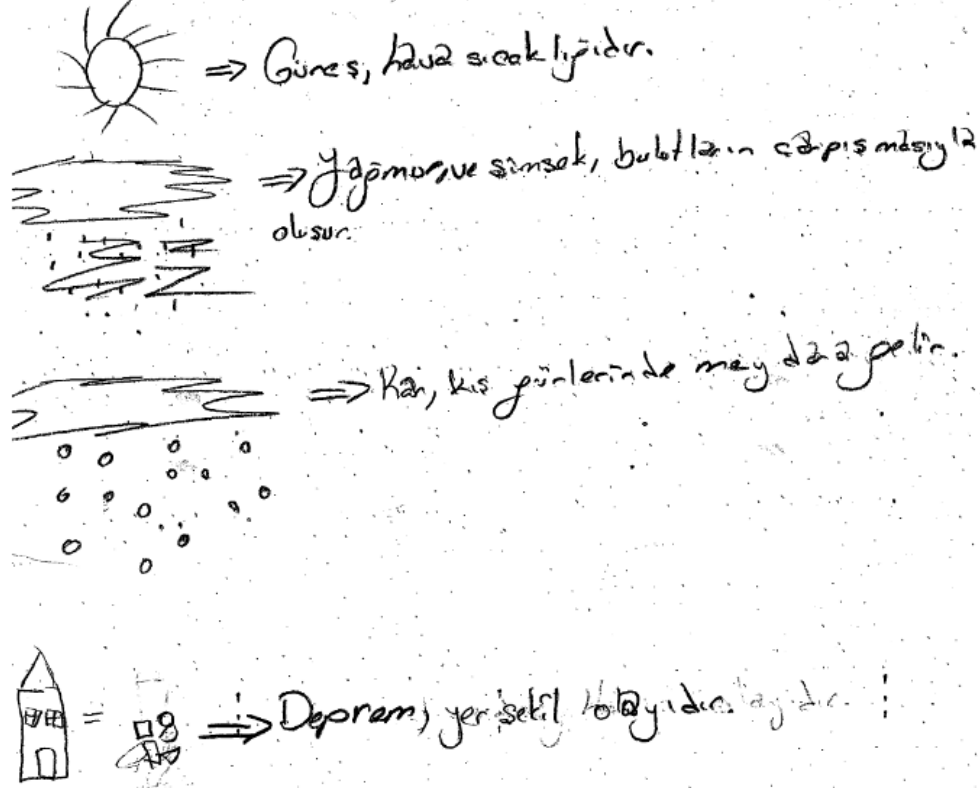 ⇒ Güneş, hava sıcaklığıdır.
⇒ Yağmur, ve şimşek, bulutların çarpışmasıyla
oluşur.
⇒ Kar, kış günlerinde meydana gelir.
= ⇒ Deprem, yer şekil olayıdır.